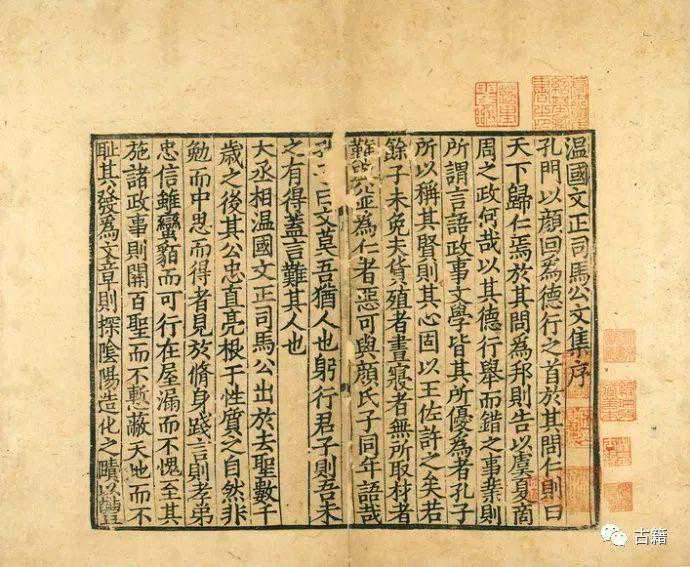 温國文正司馬公文集序
孔門以顏回為德行之首於其問仁則曰
天下歸仁焉於其問為邦則告以虞夏商
周之政何哉以其德行舉而錯之事業則
所謂言語政事文學皆其所優為者孔子
所以稱其賢則其心固以王佐許之矣若
餘子未免夫貨殖者晝寢者無所取材者
難並為仁者惡可與顏氏子同年語哉
孔曰文莫吾猶人也躬行君子則吾未
之有得蓋言難其人也
大丞相温國文正司馬公出於去聖數千
歲之後其公忠直亮根于性質之自然非
勉而中思而得者見於脩身踐言則孝弟
忠信雖蠻貊而可行在屋漏而不愧至其
施諸政事則開百聖而不慙蔽天地而不
恥其發為文章則探陰陽造化之賾以
古籍